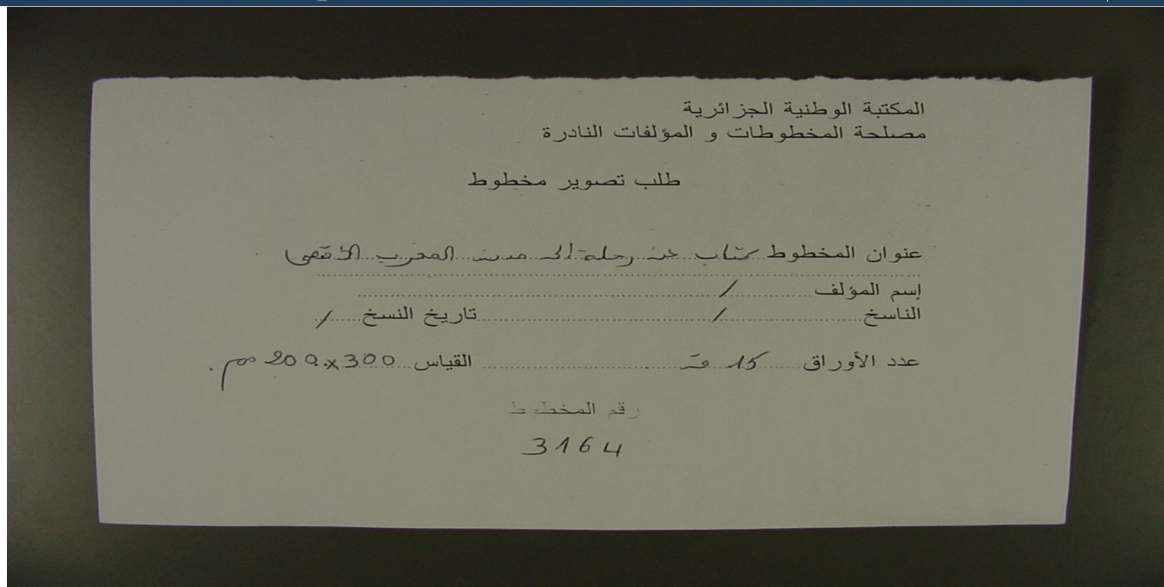 المكتبة الوطنية الجزائرية
مصلحة المخطوطات و المؤلفات النادرة
طلب تصوير مخطوط
عنوان المخطوط كتاب عن رحلة إلى مدن المغرب الأقصى
إسم المؤلف /
الناسخ / تاريخ النسخ /
عدد الأوراق 15 القياس 300x200 مم.
رقم المخطوط
3164